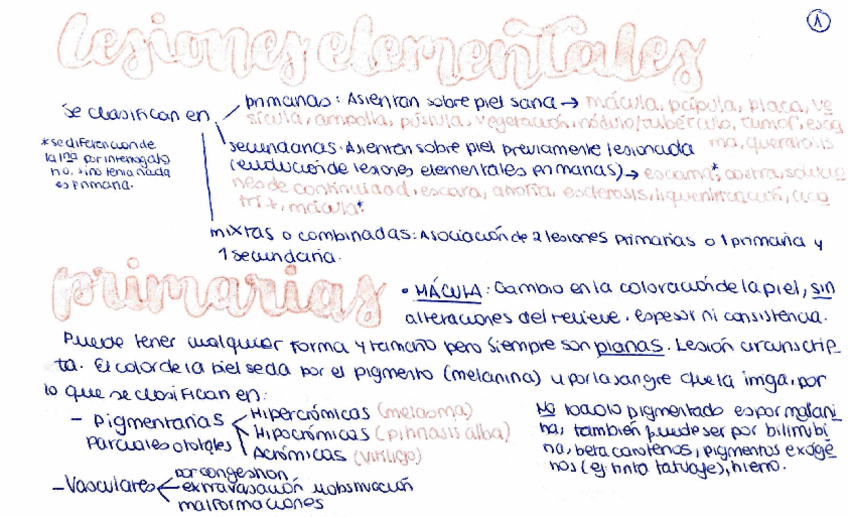 1
Lesiones elementales
se clasifican en
primarias: Asientan sobre piel sana → mácula, pápula, placa, ve
sícula, ampolla, pústula, vegetación, nódulo/tubérculo, tumor, esca
ma, queratosis
* se diferencian de
la 1ria por interrogato
rio, si no tenía nada
es primaria.
secundarias: Asientan sobre piel previamente lesionada
(evolución de lesiones elementales primarias) → escama*, costra, solucio
nes de continuidad, escara, atrofia, esclerosis, liquenificación, cica
triz, mácula*
mixtas o combinadas: Asociación de 2 lesiones primarias o 1 primaria y
1 secundaria.
primarias
• MÁCULA: Cambio en la coloración de la piel, sin
alteraciones del relieve, espesor ni consistencia.
Puede tener cualquier forma y tamaño pero siempre son planas. Lesión circunscrip
ta. El color de la piel se da por el pigmento (melanina) y por la sangre que la irriga, por
lo que se clasifican en:
- Pigmentarias
Parciales o totales
Hipercrómicas (melasma)
Hipocrómicas (pitiriasis alba)
Acrómicas (vitiligo)
No todo lo pigmentado es por melani
na, también puede ser por bilirrubi
na, beta carotenos, pigmentos exóge
nos (ej tinta tatuaje), hierro.
- Vasculares
por congestion
extravasación u obstrucción
malformaciones